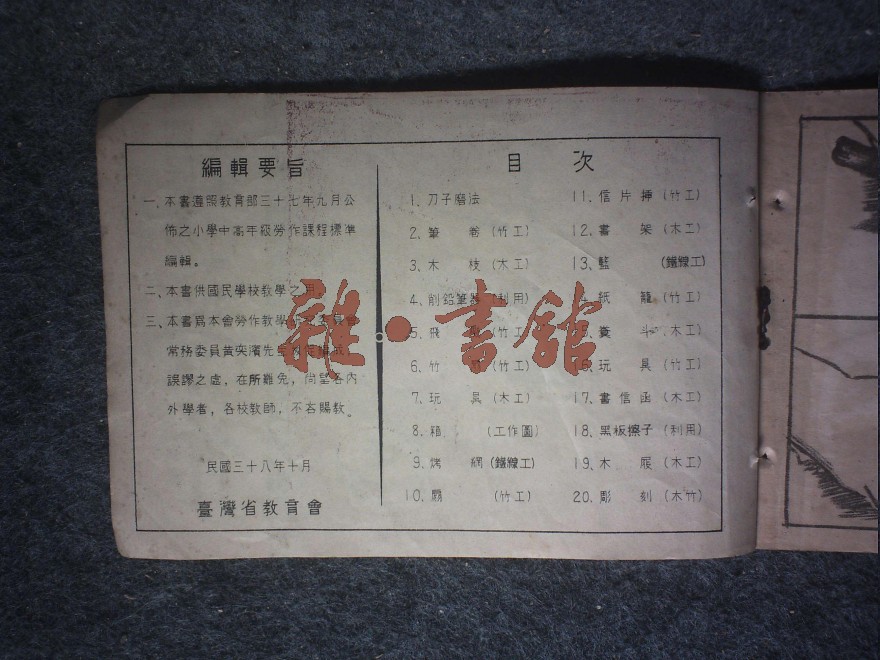 編輯要旨
一、本書遵照教育部三十七年九月公
佈之小學中高年級勞作課程標準
編輯。
二、本書供國民學校教學之用。
三、本書爲本會勞作教學
常務委員黃奕濱先生
誤謬之處，在所難免，尚望各內
外學者，各校教師，不吝賜教。
民國三十八年十月
臺灣省教育會
目次
1. 刀子磨法
2. 筆 卷 (竹工)
3. 木 枝 (木工)
4. 削鉛筆器 (利用)
5. 飛 (竹工)
6. 竹 (竹工)
7. 玩 具 (木工)
8. 箱 (工作圖)
9. 烤 網 (鐵線工)
10. (竹工)
11. 信片挿 (竹工)
12. 書 架 (木工)
13. 籃 (鐵線工)
14. 紙 簏 (竹工)
15. 糞 斗 (木工)
16. 玩 具 (竹工)
17. 書信函 (木工)
18. 黑板擦子 (利用)
19. 木 屐 (木工)
20. 彫 刻 (木竹)
雜·書舘